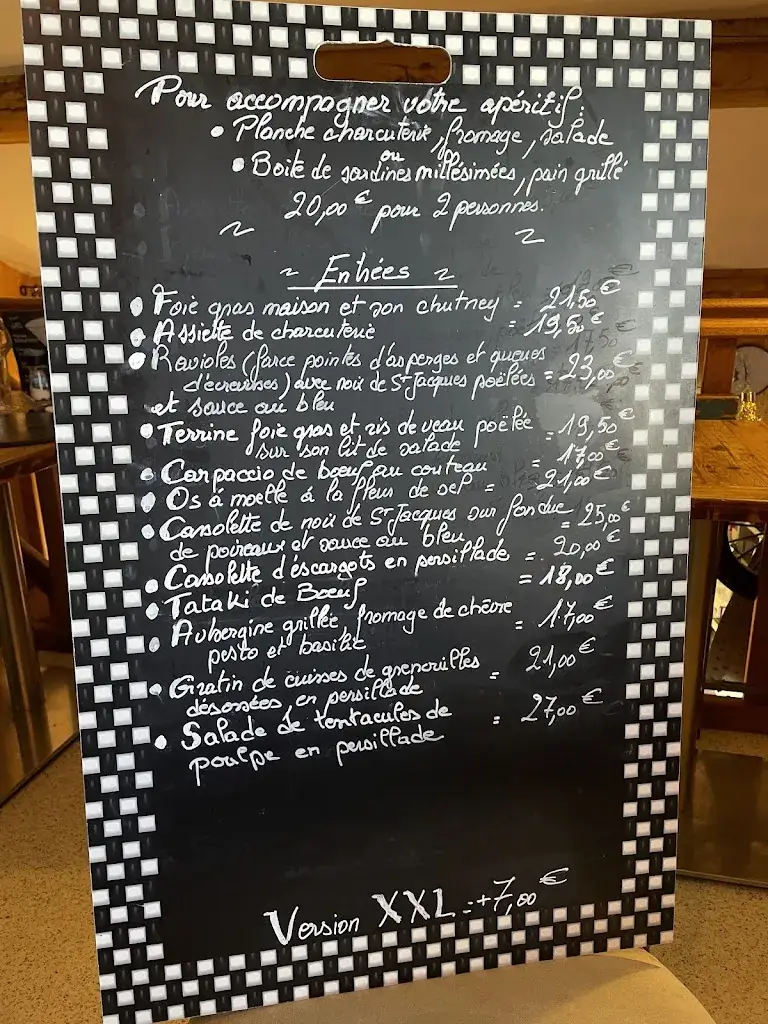 Pour accompagner votre apéritif :
• Planche charcuterie, fromage, salade
ou
• Boite de sardines millésimées, pain grillé
20,00 € pour 2 personnes.
~ ~
~ Entrées ~
• Foie gras maison et son chutney = 21,50 €
• Assiette de charcuterie = 19,50 €
• Ravioles (farce pointes d'asperges et queues
d'écrevisses) avec noix de St Jacques poëlées = 23,00 €
et sauce au bleu
• Terrine foie gras et ris de veau poëlée = 19,50 €
sur son lit de salade
• Carpaccio de boeuf au couteau = 17,00 €
• Os à moelle à la fleur de sel = 21,00 €
• Cassolette de noix de St Jacques sur fondue = 25,00 €
de poireaux et sauce au bleu
• Cassolette d'escargots en persillade = 20,00 €
• Tataki de Boeuf = 18,00 €
• Aubergine grillée, fromage de chèvre = 17,00 €
pesto et basilic
• Gratin de cuisses de grenouilles = 21,00 €
désossées, en persillade
• Salade de tentacules de = 27,00 €
poulpe en persillade
Version XXL = +7,00 €